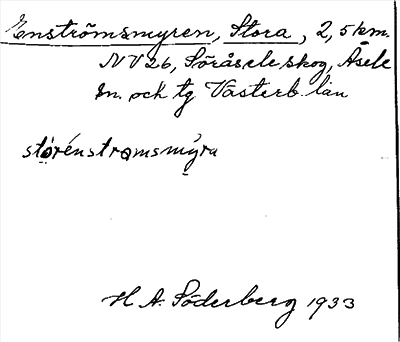 Enströmsmyren, Stora, 2,5 km.
NV 26, Söråsele skog, Åsele
sn. och tg Västerb. län
stórénstromsmýra
H A. Söderberg 1933